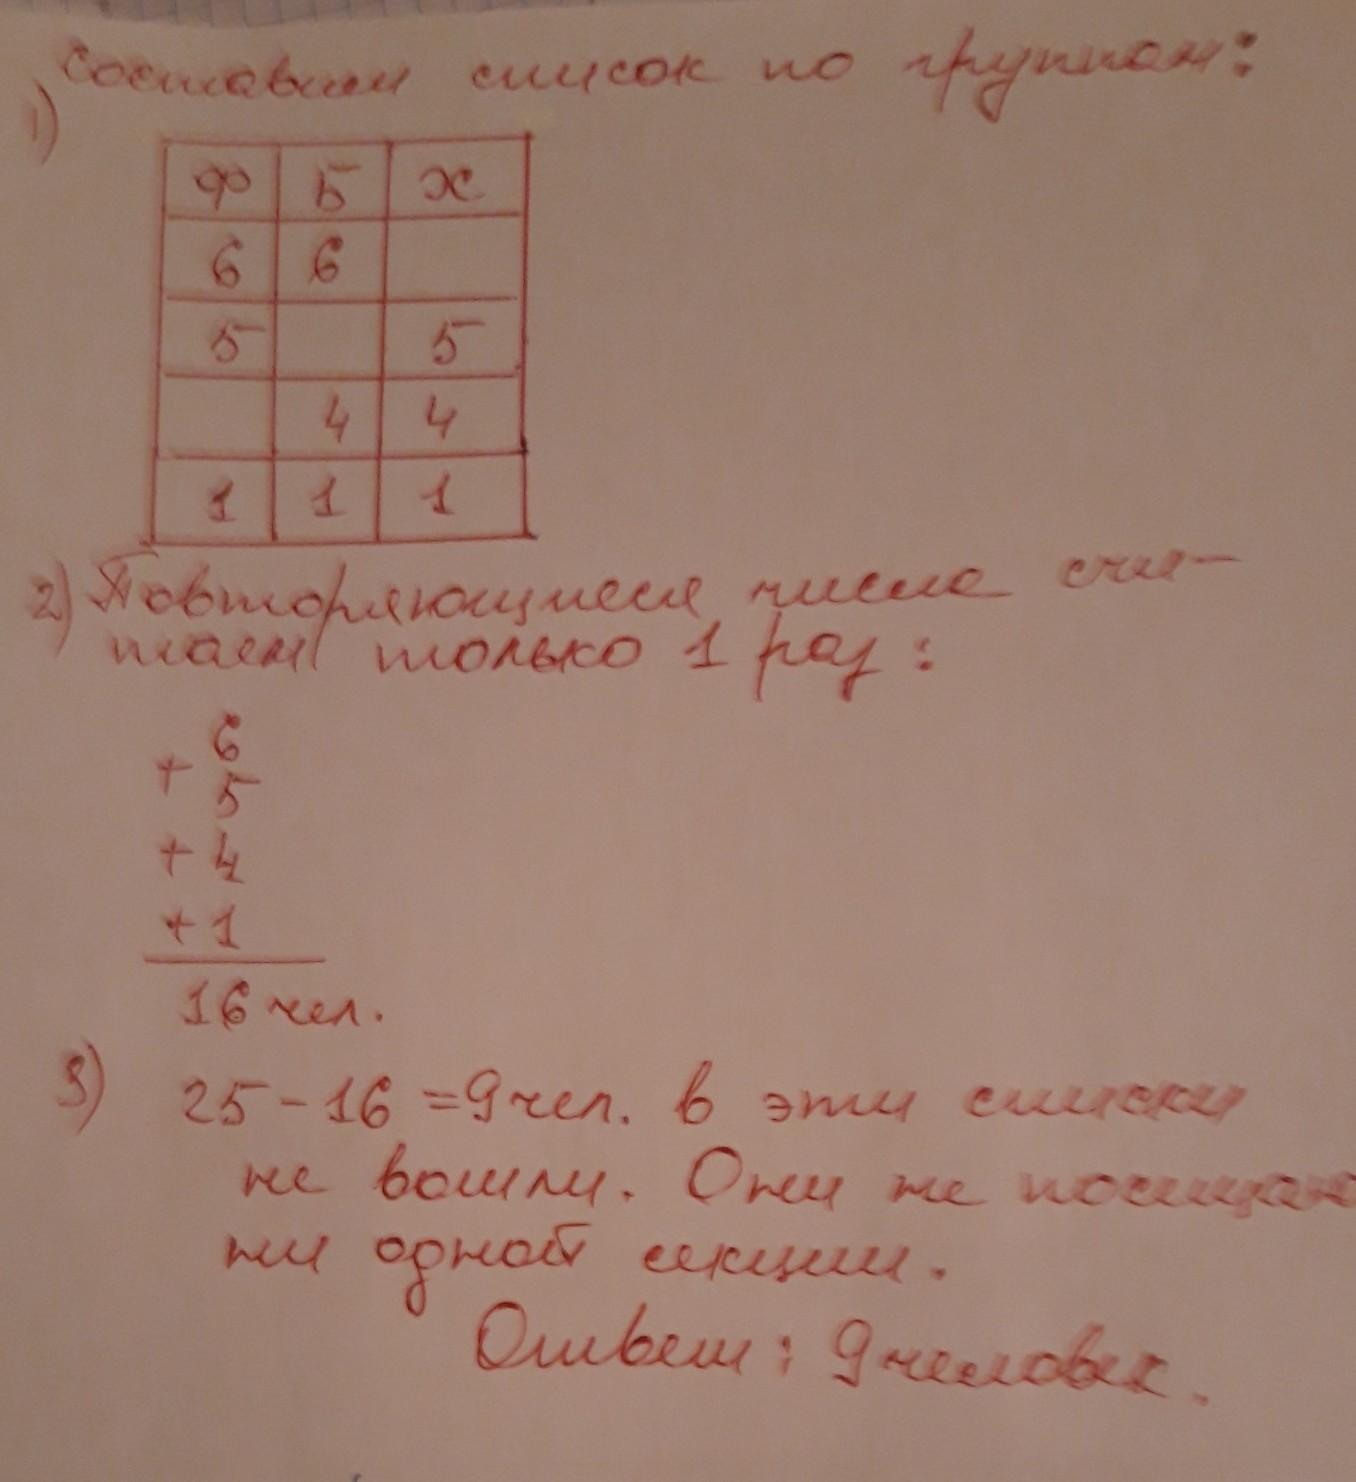 Составим список по группам:
1)
Ф Б Х
6 6
5 5
4 4
1 1 1
2) Повторяющиеся числа счи-
таем только 1 раз:
+ 6
5
+ 4
+ 1
16 чел.
3) 25 - 16 = 9 чел. в эти списки
не вошли. Они не посещаю
ни одной секции.
Ответ: 9 человек.